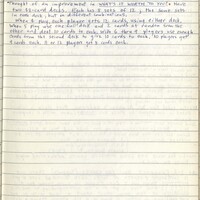 Thought of an improvement in WHO'S IS WHERE? to make: Have
two 72-card decks. Each has 6 sets of 12, the same sets
in each deck, but in different
When 6 play, each player gets 12 cards, using either deck.
When 5 play use one full deck and 3 cards at random from the
other and deal 15 cards to each. With 6 thru 9 players use enough
cards from the second deck to give 12 cards to each. 10 players get
9 cards each. 11 or 12 players get 9 cards each.